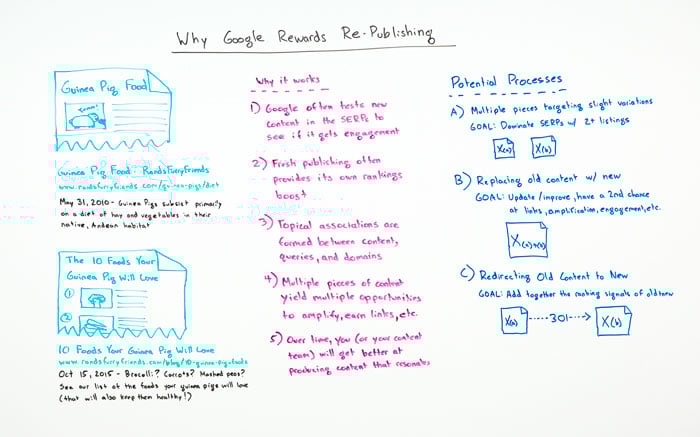 Why Google Rewards Re-Publishing
Guinea Pig Food
Guinea Pig Food - RandsFurryFriends
www.randsfurryfriends.com/guinea-pigs/diet
May 31, 2010 - Guinea Pigs subsist primarily
on a diet of hay and vegetables in their
native, Andean habitat
The 10 Foods Your
Guinea Pig Will Love
1
2
10 Foods Your Guinea Pig Will Love
www.randsfurryfriends.com/blog/10-guinea-pig-foods
Oct 15, 2015 - Brocolli? Carrots? Mashed peas?
See our list of the foods your guinea pigs will love
(that will also keep them healthy!)
Why it works
1) Google often tests new
content in the SERPs to
see if it gets engagement
2) Fresh publishing often
provides its own rankings
boost
3) Topical associations are
formed between content,
queries, and domains
4) Multiple pieces of content
yield multiple opportunities
to amplify, earn links, etc.
5) Over time, you (or your content
team) will get better at
producing content that resonates
Potential Processes
A) Multiple pieces targeting slight variations
GOAL: Dominate SERPs w/ 2+ listings
X(a) X(b)
B) Replacing old content w/ new
GOAL: Update/improve, have a 2nd chance
at links, amplification, engagement, etc.
X(a)+(b)
C) Redirecting Old Content to New
GOAL: Add together the ranking signals of old+new
X(a) 301 X(b)